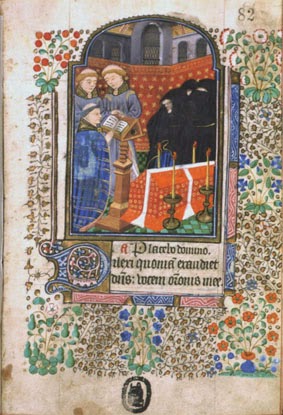 82
añ Placebo domino.
Dilexi quoniã exaudiet
dñs: vocem orõnis mee.